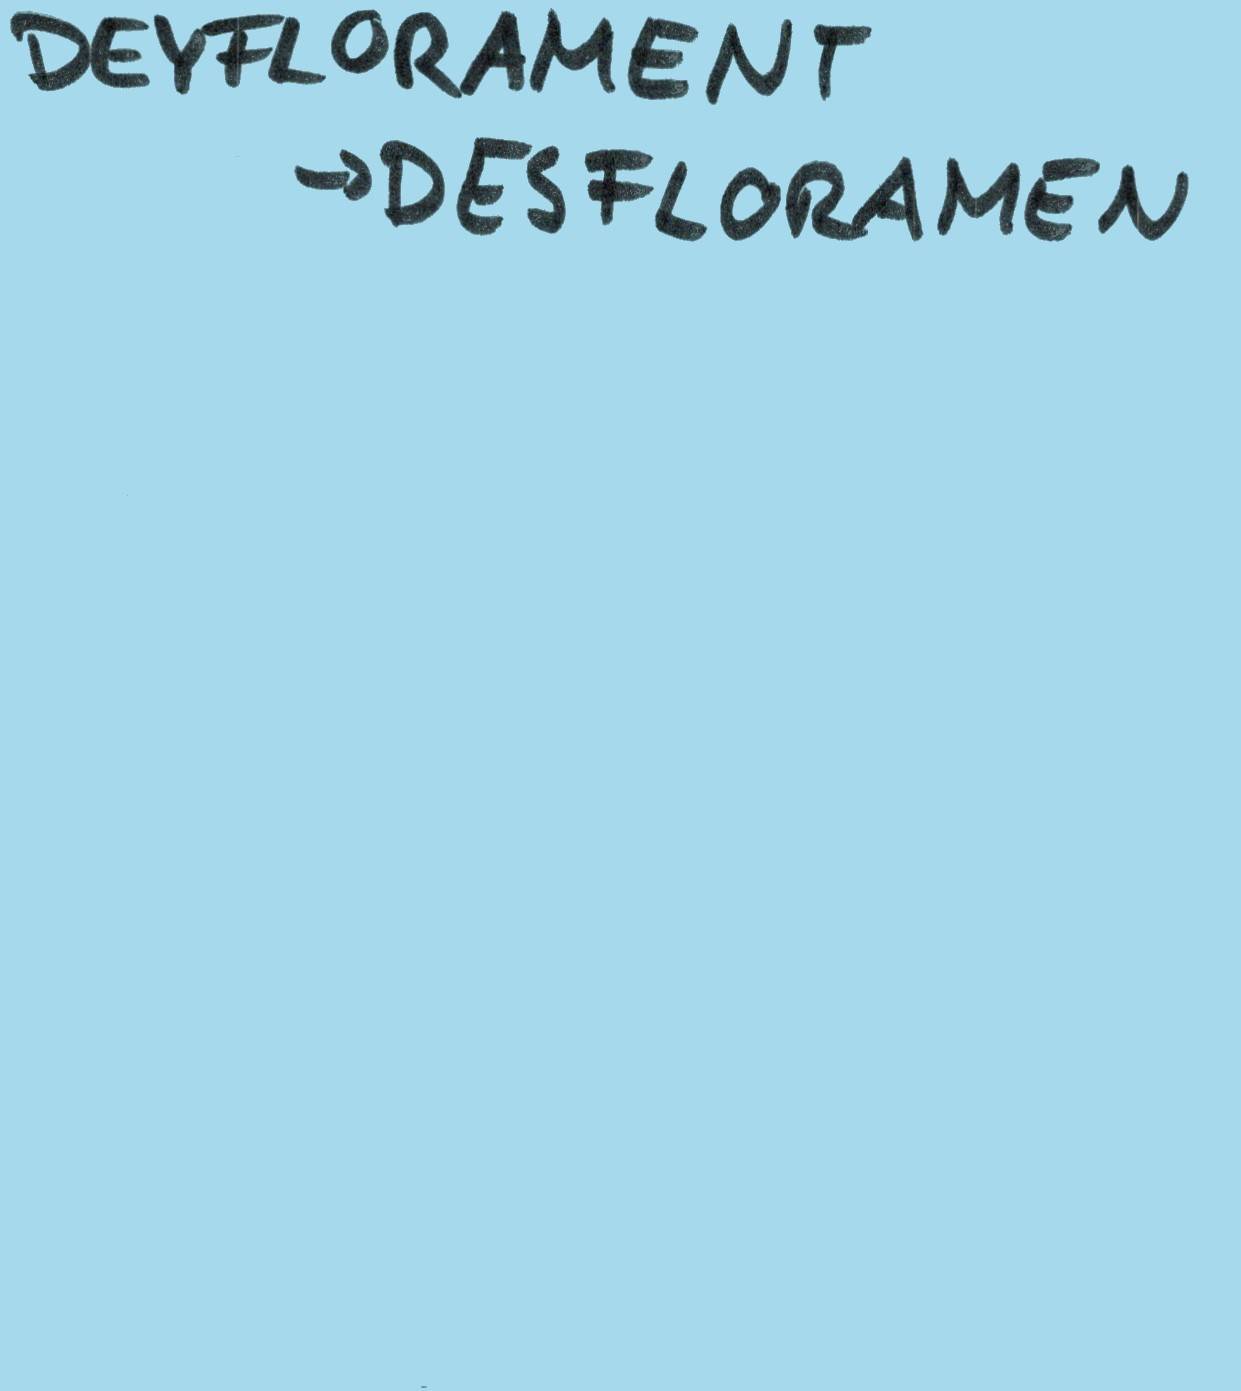 DEYFLORAMENT
→DESFLORAMEN